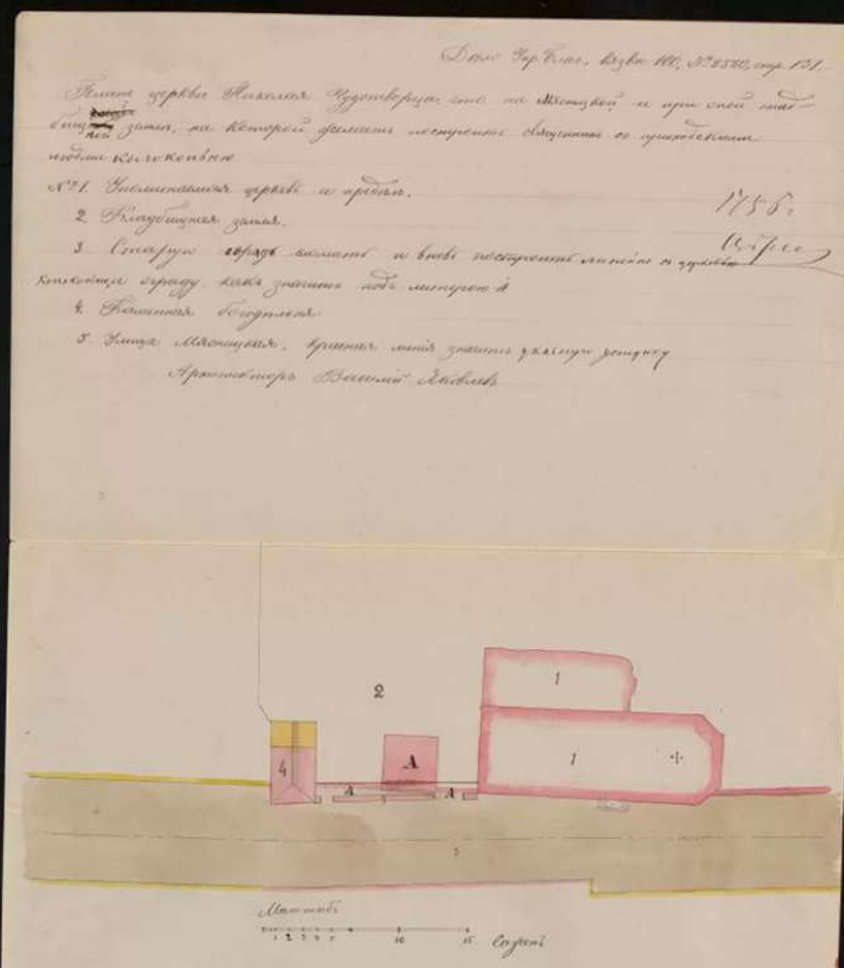 Дѣло Упр. Благ., вязка 100, № 2520, стр. 131.
Планъ церкви Николая Чудотворца, что на Мясницкой и при оной клад-
бищ ной земли, на которой желаетъ построить священникъ со приходскими
людьми
№ 1. Упоминаемая церковь и предѣлъ.
1756.
2 Кладбищная земля.
3 Старую ограду сломать и вновь построить линейно съ церковью
ограду, какъ значитъ подъ литерою А
4. Каменная богодѣльня
5. Улица Мясницкая. красная линія значитъ
Архитекторъ Василій Яковлевъ
1
2
1
4
А
А
А
5
Масштабъ
1 2 3 4 5 10 15. Сажень